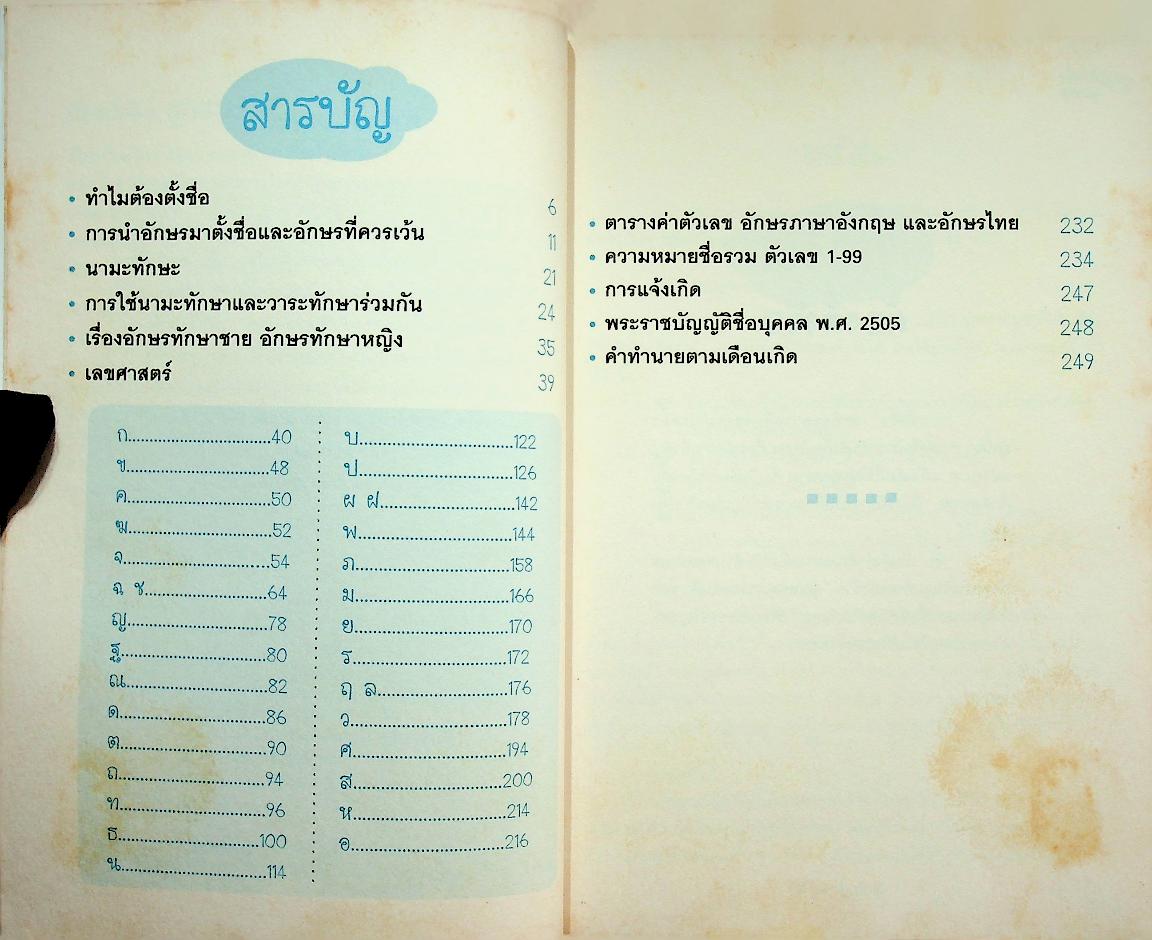 สารบัญ
• ทำไมต้องตั้งชื่อ 6
• การนำอักษรมาตั้งชื่อและอักษรที่ควรเว้น 11
• นามะทักษะ 21
• การใช้นามะทักษาและวาระทักษาร่วมกัน 24
• เรื่องอักษรทักษาชาย อักษรทักษาหญิง 35
• เลขศาสตร์ 39
ก................................40
ข................................48
ค................................50
ฆ................................52
จ.................................54
ฉ ช............................64
ญ................................78
ฐ.................................80
ณ................................82
ด.................................86
ต.................................90
ถ.................................94
ท.................................96
ธ................................100
น.................................114
บ...................................122
ป...................................126
ผ ฝ..............................142
พ...................................144
ภ...................................158
ม...................................166
ย...................................170
ร...................................172
ฤ ล.............................176
ว...................................178
ศ...................................194
ส..................................200
ห...................................214
อ...................................216
• ตารางค่าตัวเลข อักษรภาษาอังกฤษ และอักษรไทย 232
• ความหมายชื่อรวม ตัวเลข 1-99 234
• การแจ้งเกิด 247
• พระราชบัญญัติชื่อบุคคล พ.ศ. 2505 248
• คำทำนายตามเดือนเกิด 249